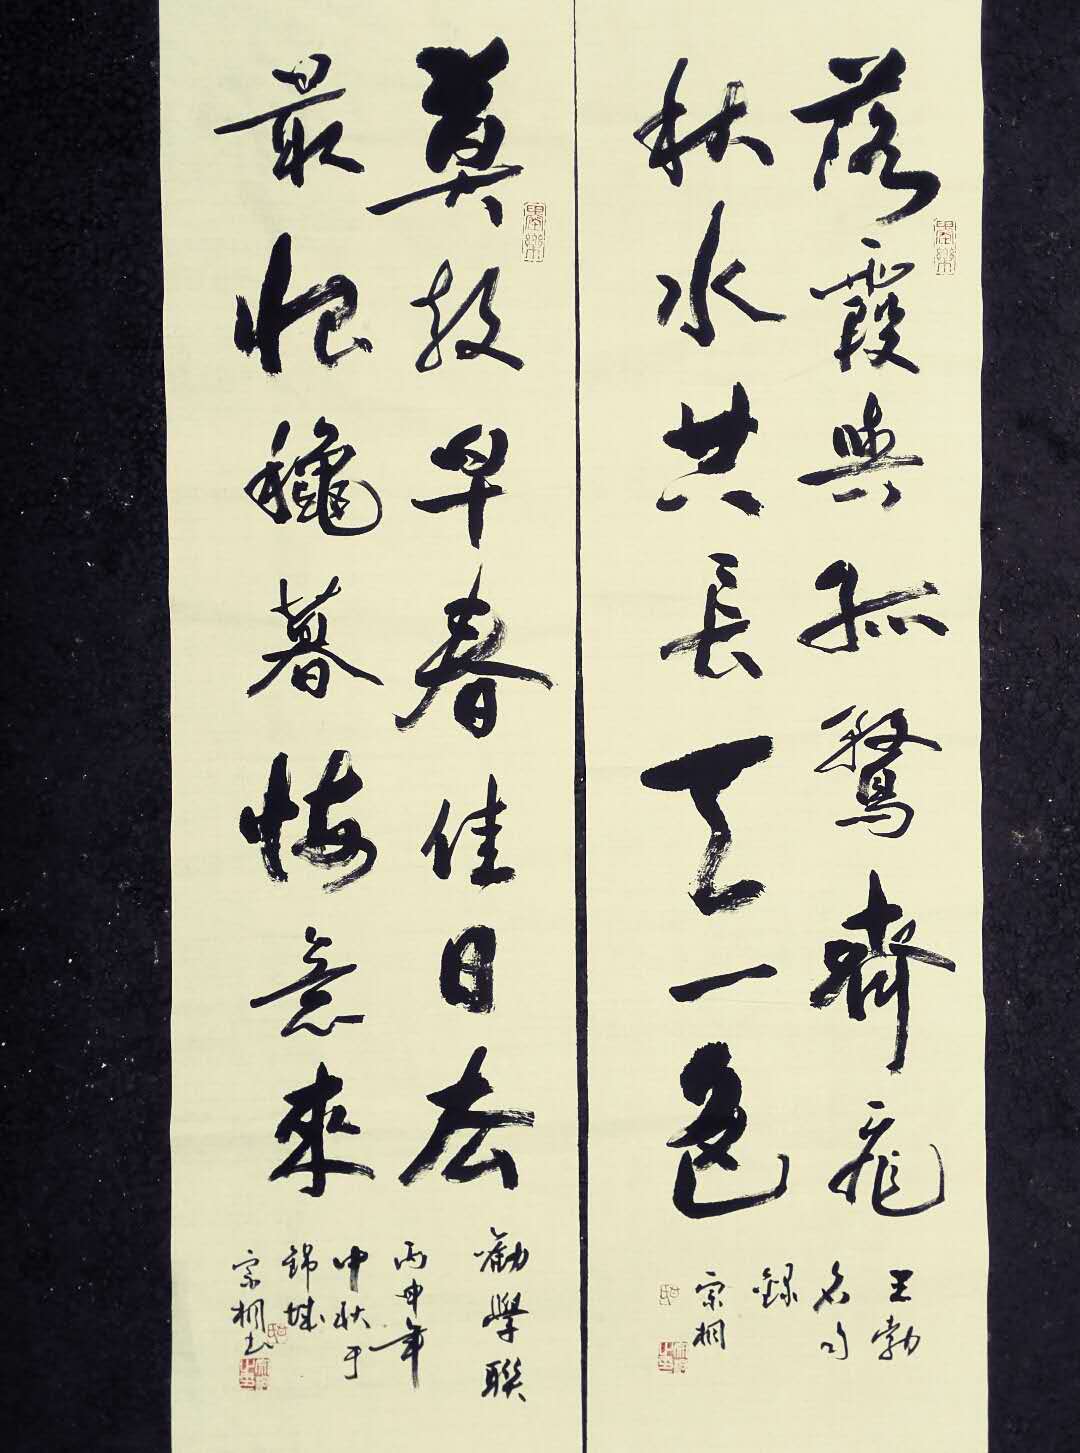 落霞與孤鶩齊飛
秋水共長天一色
王勃
名句
錄
宗桐
莫放早春佳日去
最恨穐暮悔意來
勸學聯
丙申年
中秋于
錦城
宗桐书